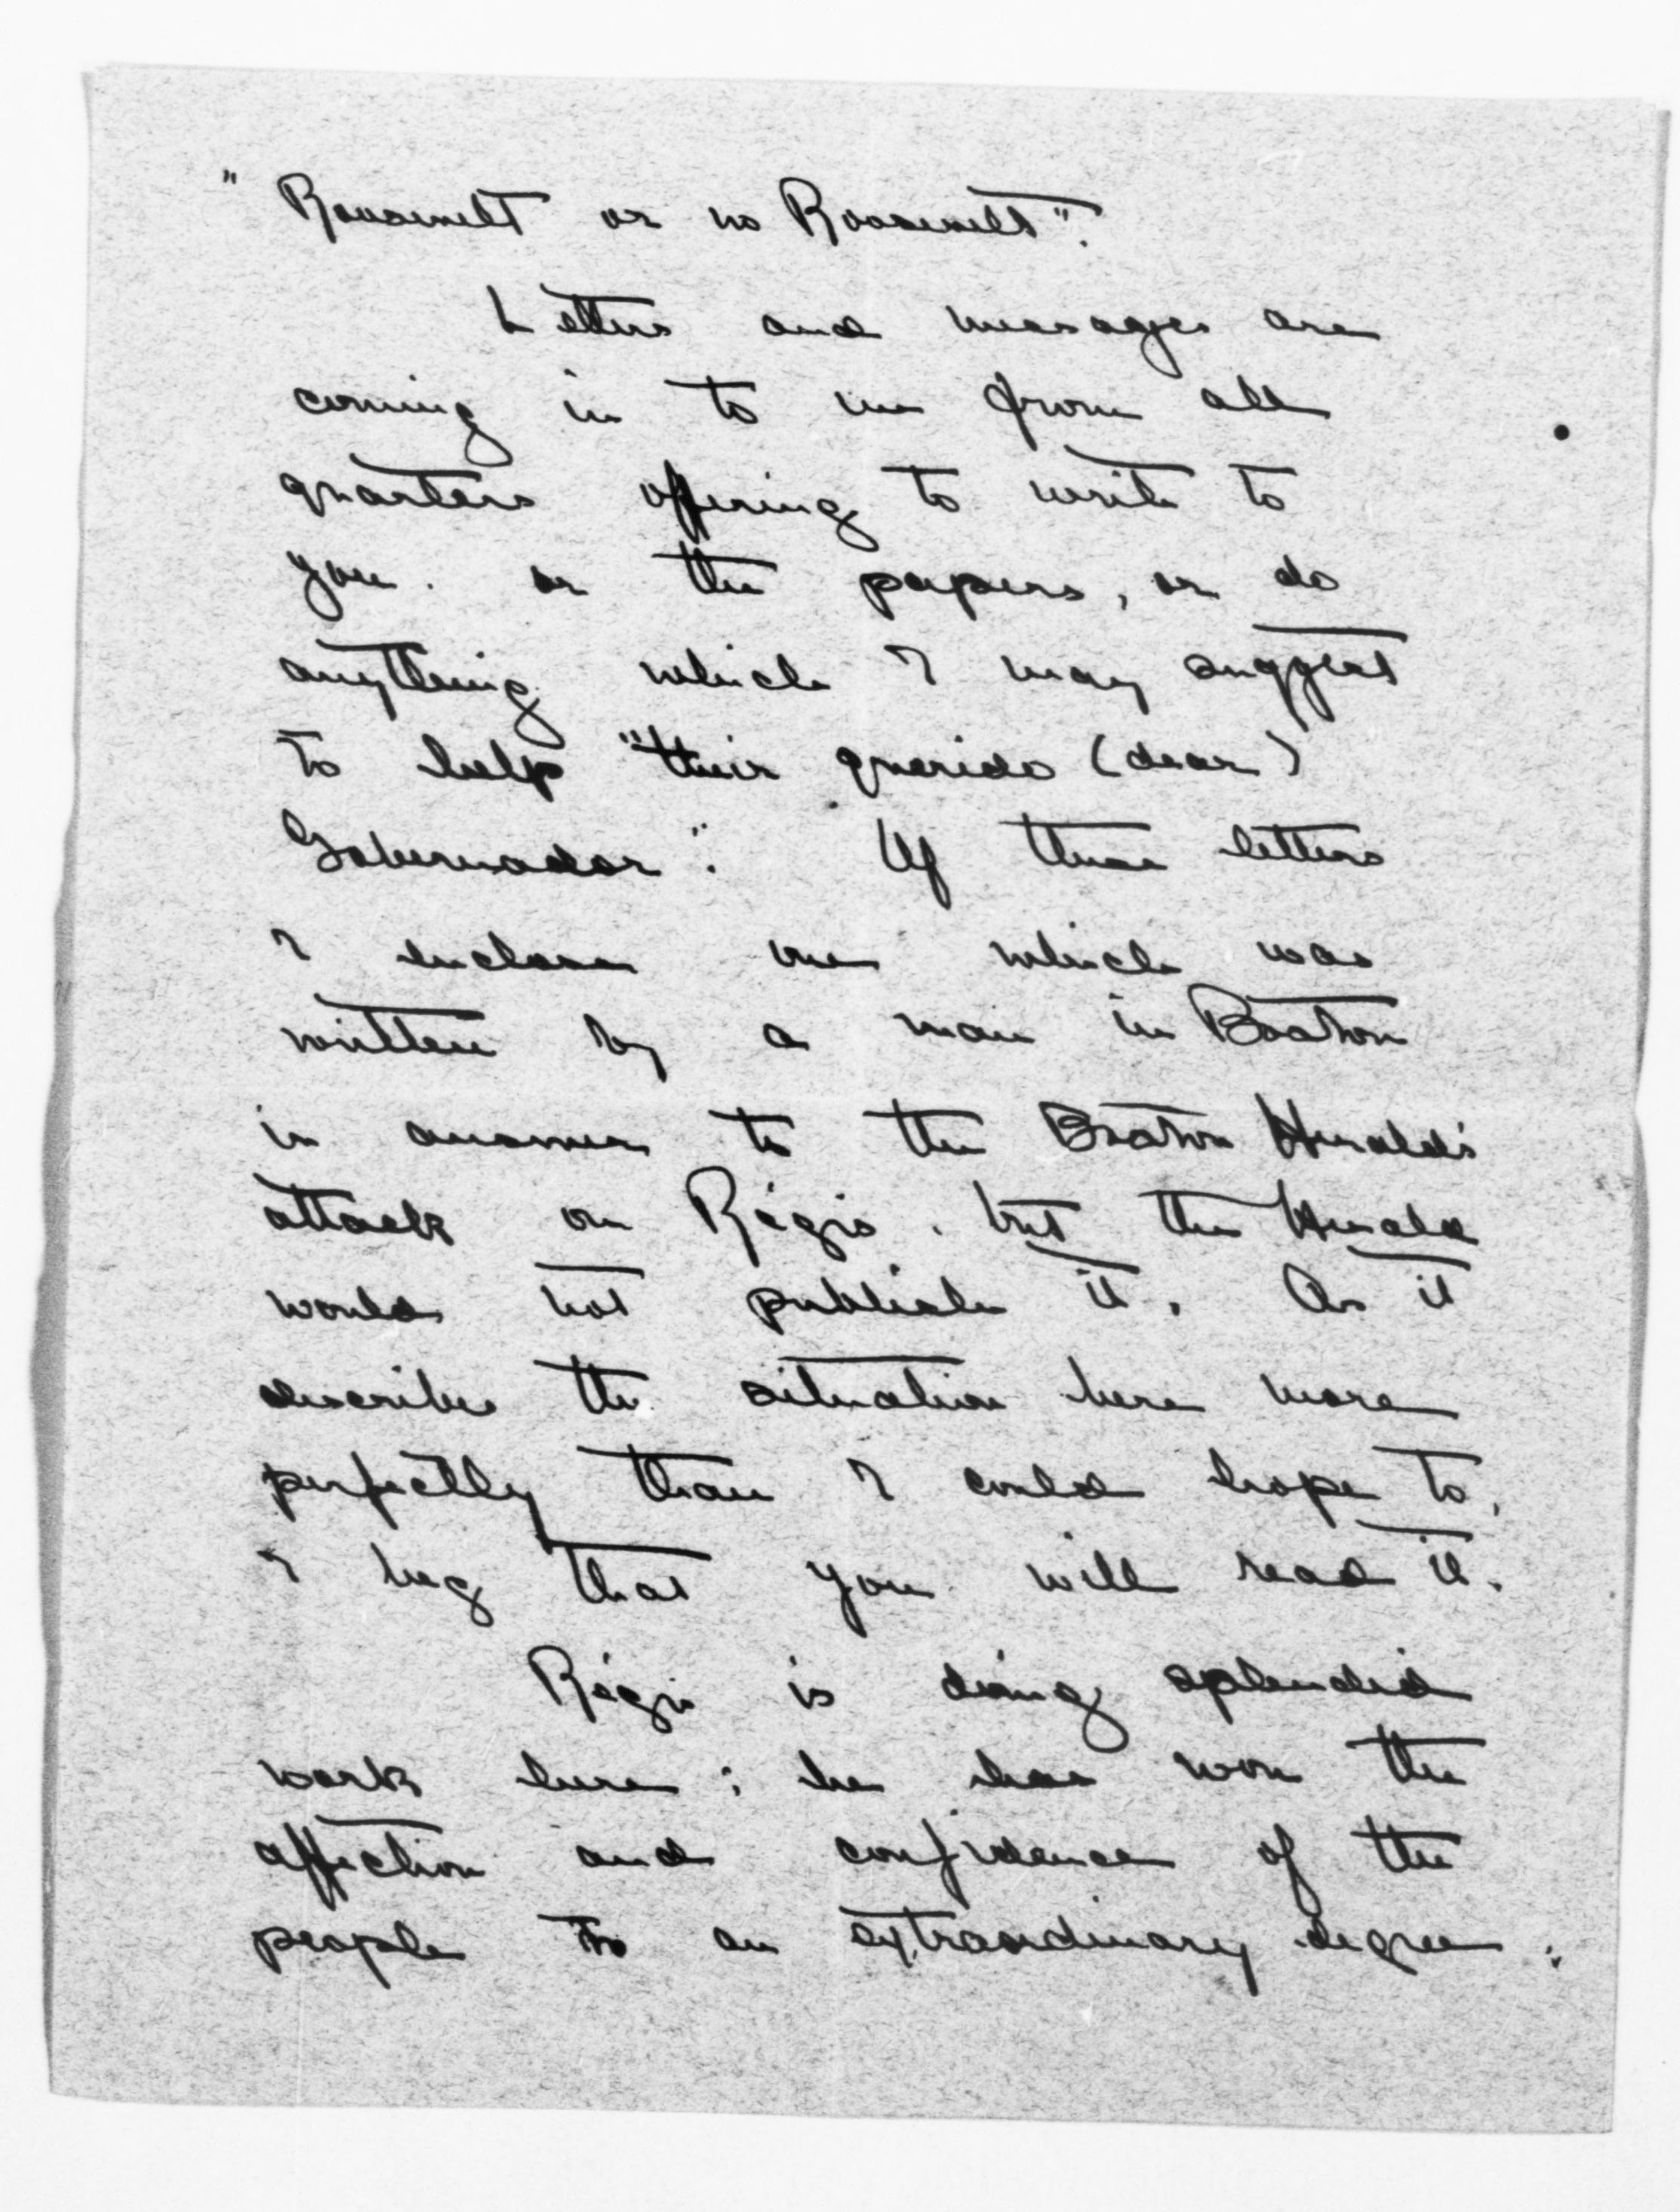 "Roosevelt or no Roosevelt".
Letters and messages are
coming in to me from all
quarters offering to write to
you. or the papers, or do
anything which I may suggest
to help "their querido (dear)
Gobernador". Of these letters
I enclose one which was
written by a man in Boston
in answer to the Boston Herald's
attack on Régis. but the Herald
would not publish it. As it
describes the situation here more
perfectly than I could hope to,
I beg that you will read it.
Régis is doing splendid
work here; he has won the
affection and confidence of the
people to an extraordinary degree;